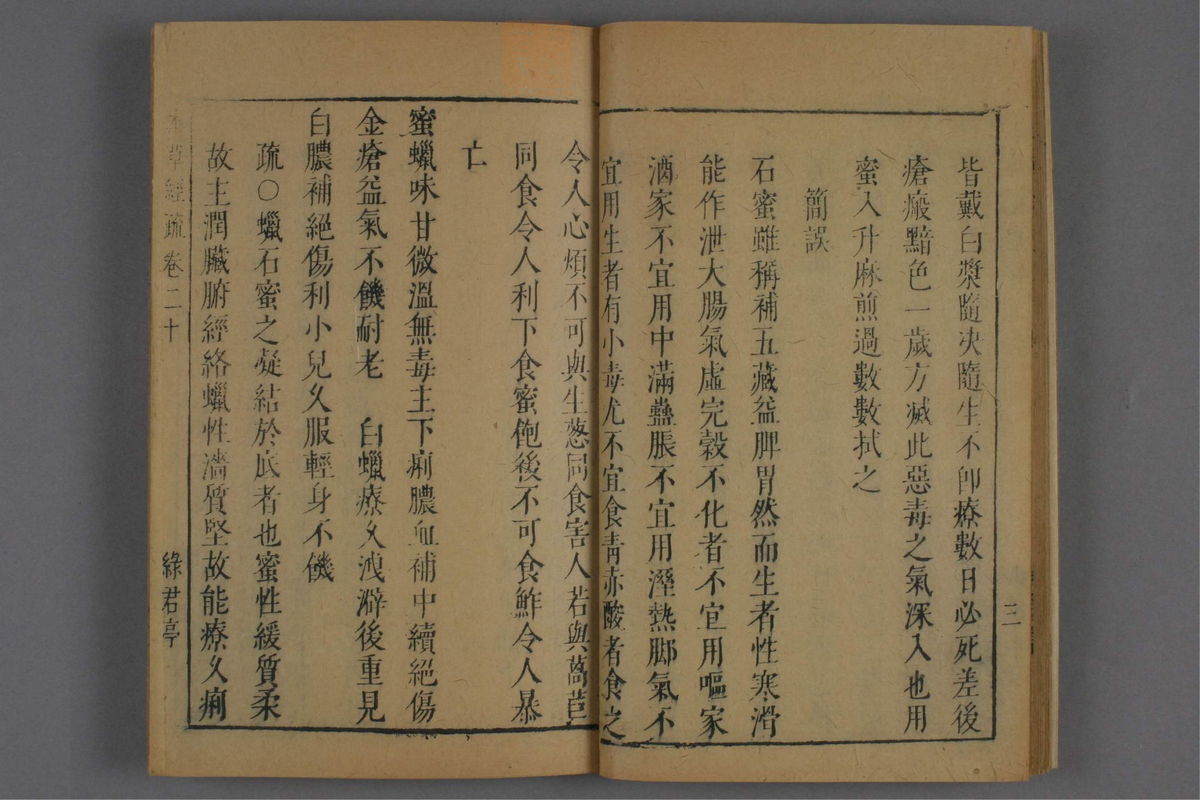 皆戴白漿隨決隨生不卽療數日必死差後
瘡瘢黯色一歲方滅此惡毒之氣深入也用
蜜入升麻煎過數數拭之
簡誤
石蜜雖稱補五藏益脾胃然而生者性寒滑
能作泄大腸氣虛完穀不化者不宜用嘔家
酒家不宜用中滿蠱脹不宜用溼熱脚氣不
宜用生者有小毒尤不宜食靑赤酸者食之
三
令人心煩不可與生葱同食害人若與萵苣
同食令人利下食蜜飽後不可食鮓令人暴
亡
蜜蠟味甘微溫無毒主下痢膿血補中續絕傷
金瘡益氣不饑耐老 白蠟療久洩澼後重見
白膿補絕傷利小兒久服輕身不饑
疏○蠟石蜜之凝結於底者也蜜性緩質柔
故主潤臟腑經絡蠟性濇質堅故能療久痢
本草經疏卷二十 綠君亭